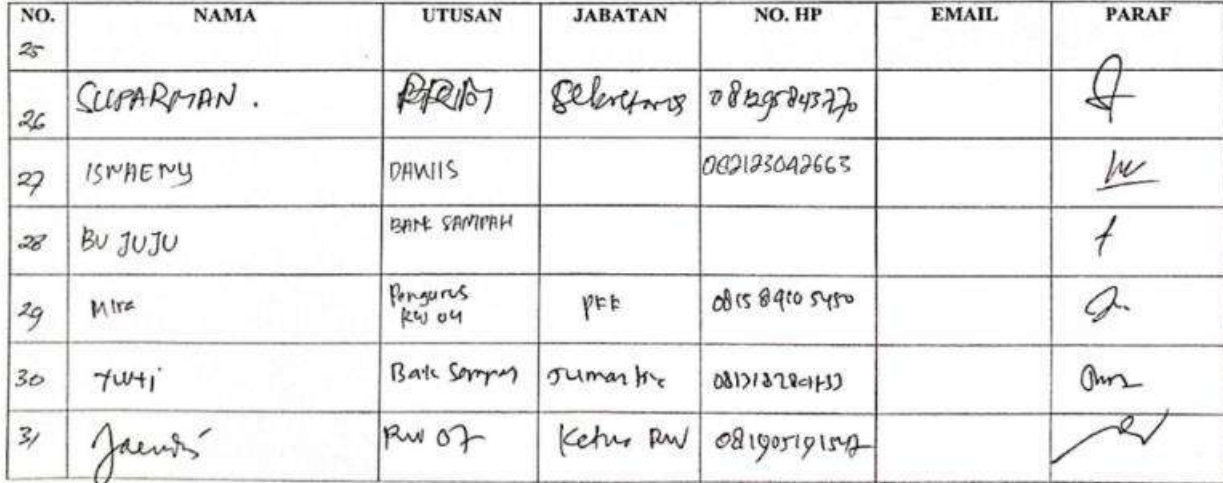 NO. NAMA UTUSAN JABATAN NO. HP EMAIL PARAF
25
26 SUPARMAN. Sekretaris
27 ISNAENY DAWIS 082123042663
28 BU JUJU BANK SAMPAH
29 Mira Pengurus RW 04 PKK 0815 8910 5450
30 Tuti Bank Sampah Jumantik
31 Jaendi RW 07 Ketua RW